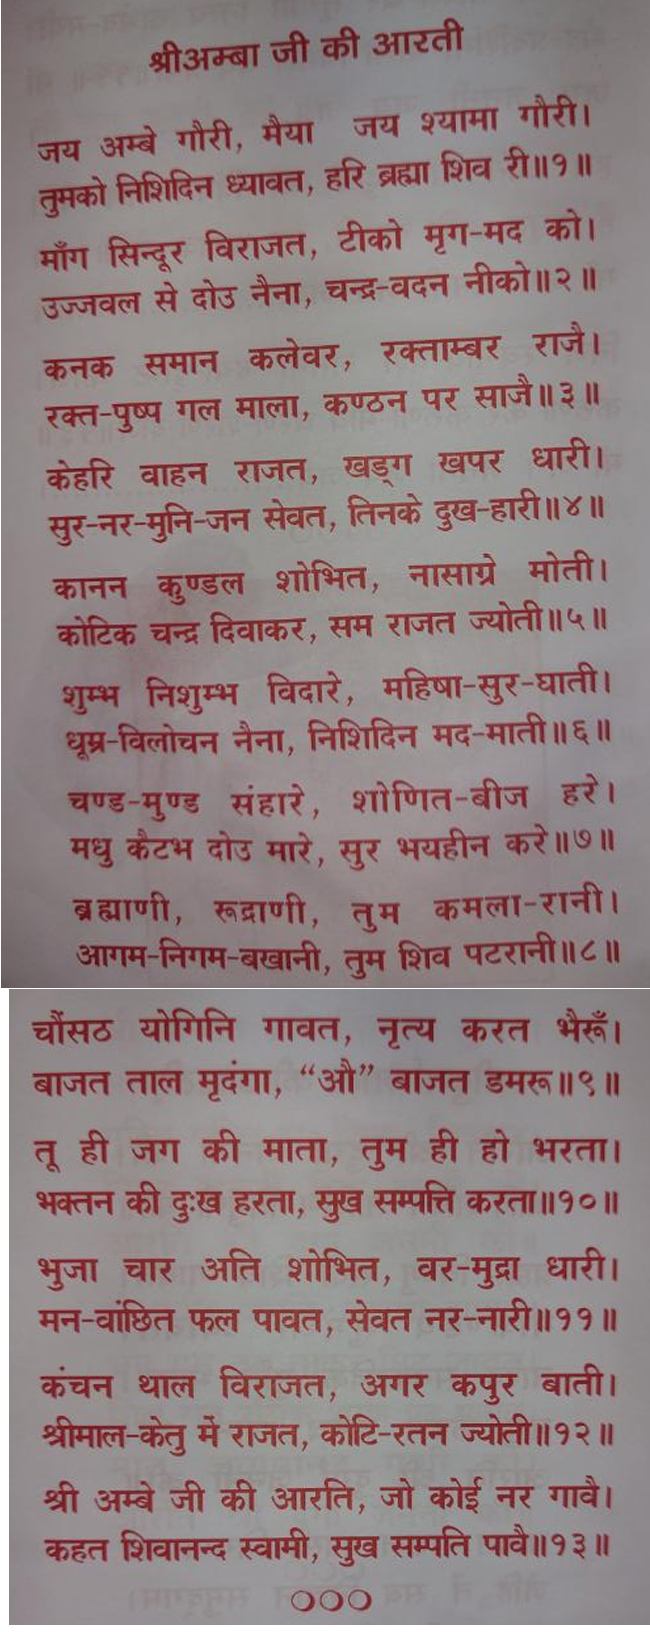 श्रीअम्बा जी की आरती
जय अम्बे गौरी, मैया जय श्यामा गौरी।
तुमको निशिदिन ध्यावत, हरि ब्रह्मा शिव री॥१॥
माँग सिन्दूर विराजत, टीको मृग-मद को।
उज्जवल से दोउ नैना, चन्द्र-वदन नीको॥२॥
कनक समान कलेवर, रक्ताम्बर राजै।
रक्त-पुष्प गल माला, कण्ठन पर साजै॥३॥
केहरि वाहन राजत, खड्ग खपर धारी।
सुर-नर-मुनि-जन सेवत, तिनके दुख-हारी॥४॥
कानन कुण्डल शोभित, नासाग्रे मोती।
कोटिक चन्द्र दिवाकर, सम राजत ज्योती॥५॥
शुम्भ निशुम्भ विदारे, महिषा-सुर-घाती।
धूम्र-विलोचन नैना, निशिदिन मद-माती॥६॥
चण्ड-मुण्ड संहारे, शोणित-बीज हरे।
मधु कैटभ दोउ मारे, सुर भयहीन करे॥७॥
ब्रह्माणी, रूद्राणी, तुम कमला-रानी।
आगम-निगम-बखानी, तुम शिव पटरानी॥८॥
चौंसठ योगिनि गावत, नृत्य करत भैरूँ।
बाजत ताल मृदंगा, “औ” बाजत डमरू॥९॥
तू ही जग की माता, तुम ही हो भरता।
भक्तन की दुःख हरता, सुख सम्पत्ति करता॥१०॥
भुजा चार अति शोभित, वर-मुद्रा धारी।
मन-वांछित फल पावत, सेवत नर-नारी॥११॥
कंचन थाल विराजत, अगर कपुर बाती।
श्रीमाल-केतु में राजत, कोटि-रतन ज्योती॥१२॥
श्री अम्बे जी की आरति, जो कोई नर गावै।
कहत शिवानन्द स्वामी, सुख सम्पति पावै॥१३॥